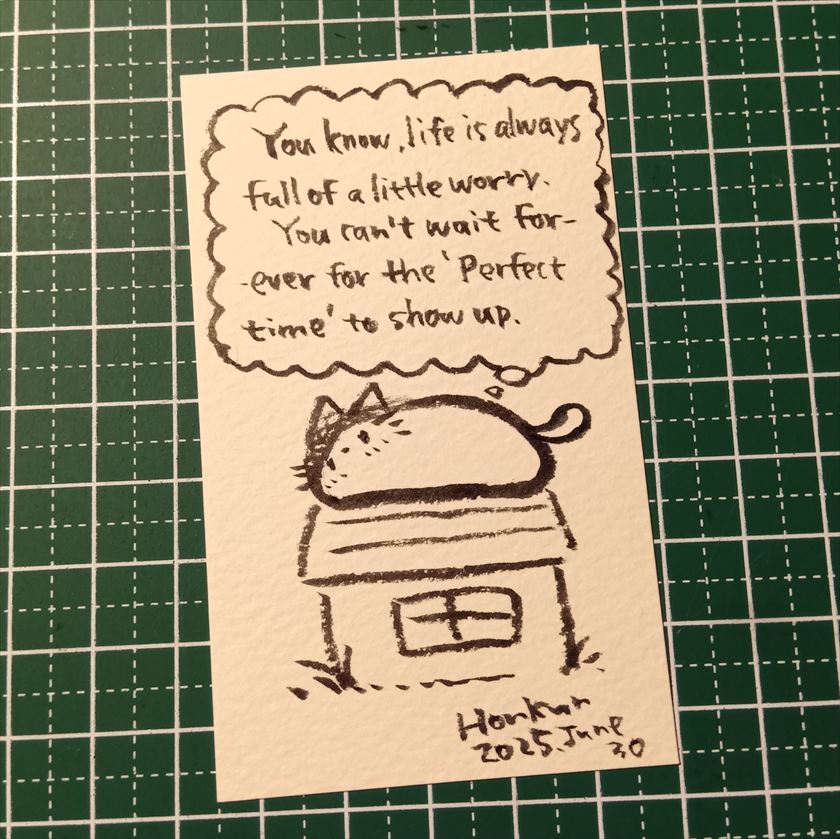 You know, life is always
full of a little worry.
You can't wait for-
-ever for the 'Perfect
time' to show up.
Honkun
2025. June
30